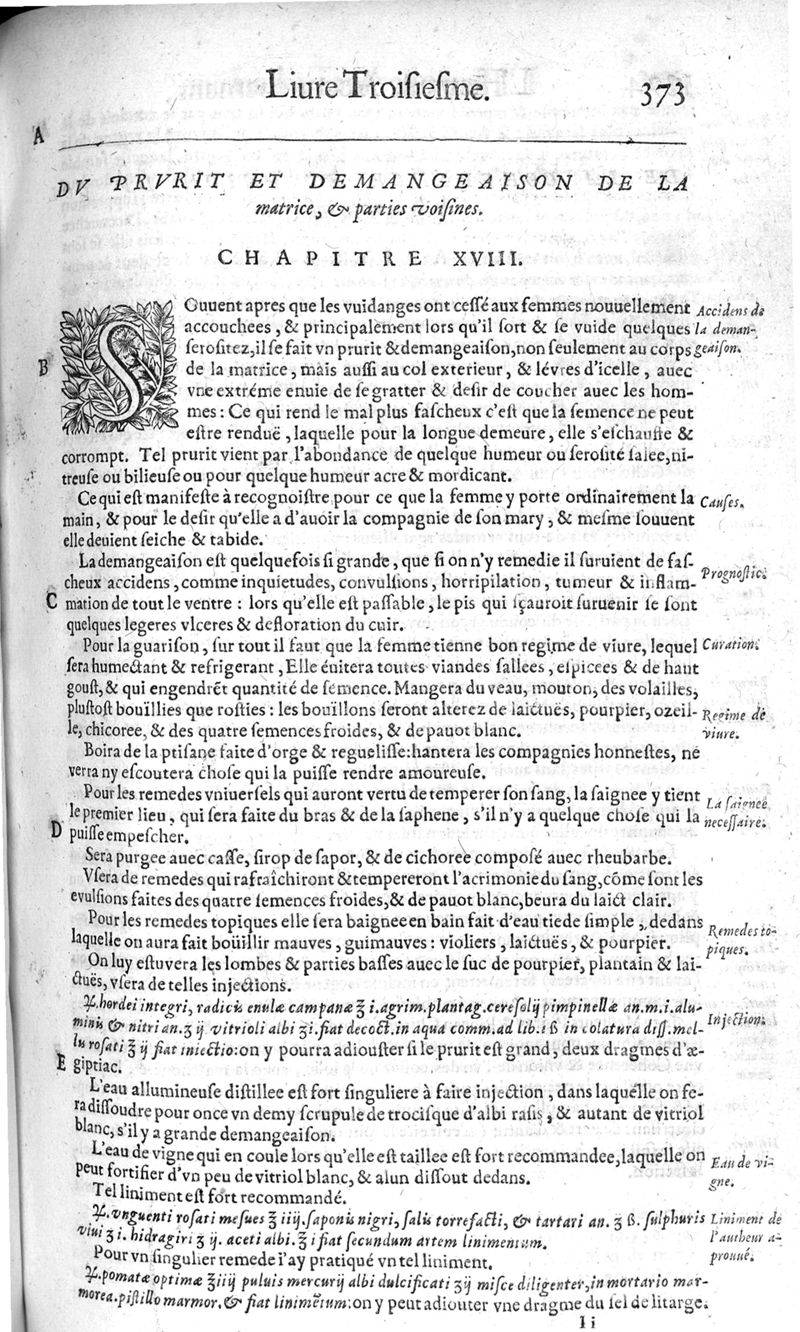 Liure Troisiesme. 373
A
DV PRVRIT ET DEMANGEAISON DE LA
matrice, & parties voisines.
CHAPITRE XVIII.
SOuuent apres que les vuidanges ont cessé aux femmes nouuellement
accouchees, & principalement lors qu'il sort & se vuide quelques
serositez, il se fait vn prurit & demangeaison, non seulement au corps
Accidens de
la deman-
geaison.
B
de la matrice, mais aussi au col exterieur, & lévres d'icelle, auec
vne extréme enuie de se gratter & desir de coucher auec les hom-
mes : Ce qui rend le mal plus fascheux c'est que la semence ne peut
estre renduë, laquelle pour la longue demeure, elle s'eschauffe &
corrompt. Tel prurit vient par l'abondance de quelque humeur ou serosité salee, ni-
treuse ou bilieuse ou pour quelque humeur acre & mordicant.
Ce qui est manifeste à recognoistre pour ce que la femme y porte ordinairement la
Causes.
main, & pour le desir qu'elle a d'auoir la compagnie de son mary, & mesme souuent
elle deuient seiche & tabide.
La demangeaison est quelquefois si grande, que si on n'y remedie il suruient de fas-
Prognostic.
cheux accidens, comme inquietudes, convulsions, horripilation, tumeur & inflam-
C
mation de tout le ventre : lors qu'elle est passable, le pis qui sçauroit suruenir se sont
quelques legeres vlceres & defloration du cuir.
Pour la guarison, sur tout il faut que la femme tienne bon regime de viure, lequel
Curation.
sera humectant & refrigerant, Elle éuitera toutes viandes sallees, espicees & de haut
goust, & qui engendrēt quantité de semence. Mangera du veau, mouton, des volailles,
plustost bouïllies que rosties : les bouïllons seront alterez de laictuës, pourpier, ozeil-
Regime de
viure.
le, chicoree, & des quatre semences froides, & de pauot blanc.
Boira de la ptisane faite d'orge & reguelisse: hantera les compagnies honnestes, ne
verra ny escoutera chose qui la puisse rendre amoureuse.
Pour les remedes vniuersels qui auront vertu de temperer son sang, la saignee y tient
La saignee
necessaire.
le premier lieu, qui sera faite du bras & de la saphene, s'il n'y a quelque chose qui la
D
puisse empescher.
Sera purgee auec casse, sirop de sapor, & de cichoree composé auec rheubarbe.
Vsera de remedes qui rafraîchiront & tempereront l'acrimonie du sang, cōme sont les
evulsions faites des quatre semences froides, & de pauot blanc, beura du laict clair.
Pour les remedes topiques elle sera baignee en bain fait d'eau tiede simple, dedans
Remedes to-
piques.
laquelle on aura fait boüillir mauves, guimauves : violiers, laictuës, & pourpier.
On luy estuvera les lombes & parties basses auec le suc de pourpier, plantain & lai-
ctuës, vsera de telles injections.
℞. hordei integri, radicis enulæ campanæ ℥ i. agrim. plantag. ceresolij pimpinellæ an. m. i. alu-
Injection.
minis & nitri an. ʒ ij. vitrioli albi ʒ i. fiat decoct. in aqua comm. ad lib. i ß in colatura diss. mel-
lis rosati ℥ ij fiat iniectio: on y pourra adiouster si le prurit est grand, deux dragmes d'æ-
E
giptiac.
L'eau allumineuse distillee est fort singuliere à faire injection, dans laquelle on fe-
ra dissoudre pour once vn demy scrupule de trocisque d'albi rasis, & autant de vitriol
blanc, s'il y a grande demangeaison.
L'eau de vigne qui en coule lors qu'elle est taillee est fort recommandee, laquelle on
Eau de vi-
gne.
peut fortifier d'vn peu de vitriol blanc, & alun dissout dedans.
Tel liniment est fort recommandé.
℞. vnguenti rosati mesues ℥ iiij. saponis nigri, salis torrefacti, & tartari an. ʒ ß. sulphuris
Liniment de
l'autheur a-
prouué.
viui ʒ i. hidragiri ʒ ij. aceti albi. ℥ i fiat secundum artem linimentum.
Pour vn singulier remede i'ay pratiqué vn tel liniment.
℞. pomatæ optimæ ℥iij puluis mercurij albi dulcificati ʒij misce diligenter, in mortario mar-
morea. pistillo marmor. & fiat linimētum: on y peut adiouter vne dragme du sel de litarge.
Ii